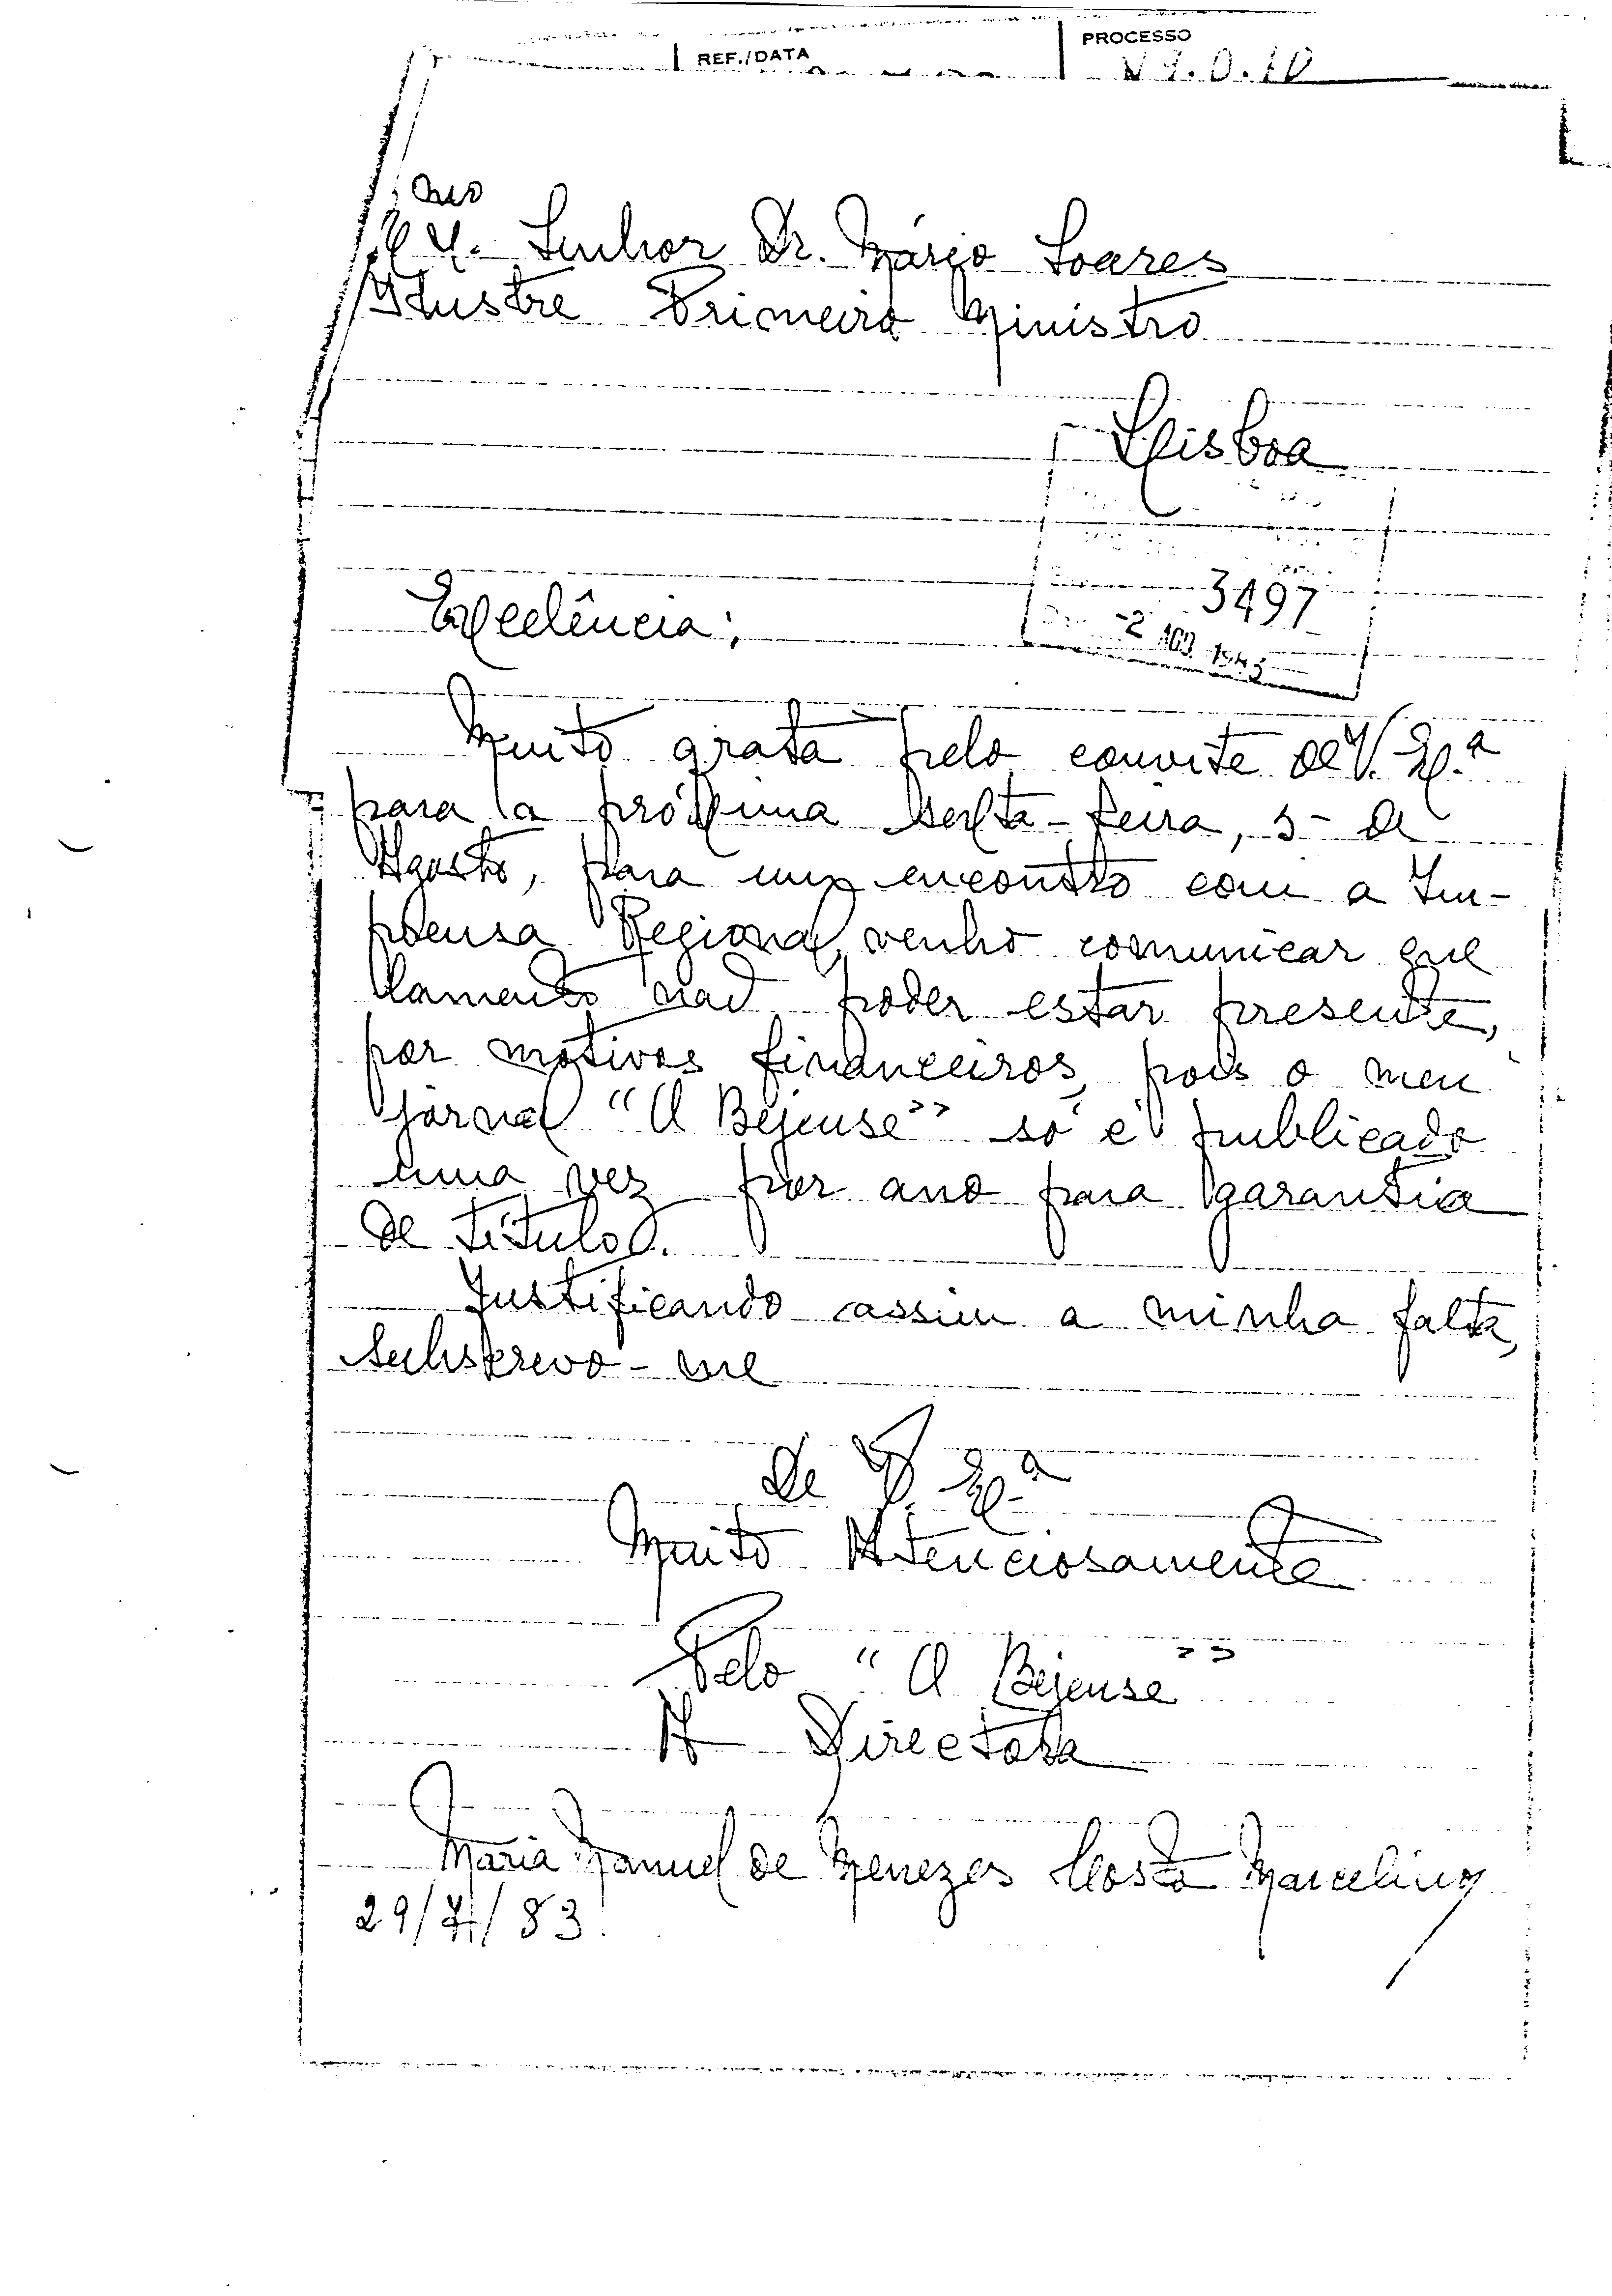 PROCESSO
REF./DATA
mo
Ex. Senhor Dr. Mário Soares
Ilustre Primeiro Ministro
Lisboa
3497
-2 AGO. 1983
Excelência;
Muito grata pelo convite de V. Ex.ª
para a próxima sexta-feira, 5 de
Agosto, para um encontro com a Im-
prensa Regional, venho comunicar que
lamento não poder estar presente,
por motivos financeiros, pois o meu
jornal "O Bejense" só é publicado
uma vez por ano para garantia
de título.
Justificando assim a minha falta,
subscrevo-me
De V. Ex.ª
Muito Atenciosamente
Pelo "O Bejense"
A Directora
Maria Manuel de Menezes Costa Marcelino
29/7/83